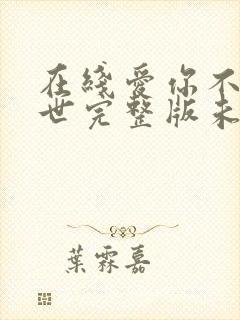 在綫愛你不
世完整版未
葉霖嘉